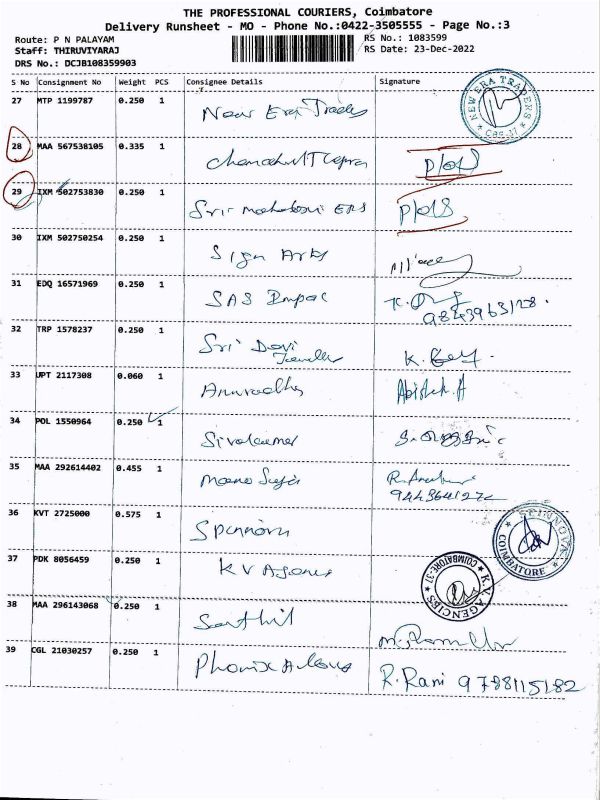 THE PROFESSIONAL COURIERS, Coimbatore
Delivery Runsheet - MO - Phone No.:0422-3505555 - Page No.:3
Route: P N PALAYAM
RS No.: 1083599
Staff: THIRUVIYARAJ
RS Date: 23-Dec-2022
DRS No.: DCJB108359903
S No Consignment No Weight PCS Consignee Details Signature
27 MTP 1199787 0.250 1
New Era Traders
NEW ERA TRADERS * CBE-37 *
28 MAA 567538105 0.335 1
29 IXM 502753830 0.250 1
Sri
30 IXM 502750254 0.250 1
Sign Arts
31 EDQ 16571969 0.250 1
SAS Impac
9843963128.
32 TRP 1578237 0.250 1
Sri Devi
33 UPT 2117308 0.060 1
Anuradha
34 POL 1550964 0.250 1
Sivakumar
35 MAA 292614402 0.455 1
36 KVT 2725000 0.575 1
SPINNOVA
COIMBATORE
37 PDK 8056459 0.250 1
K V Agencies
K.V. AGENCIES * COIMBATORE-37 *
38 MAA 296143068 0.250 1
Senthil
39 CGL 21030257 0.250 1
R. Rani 9788115182